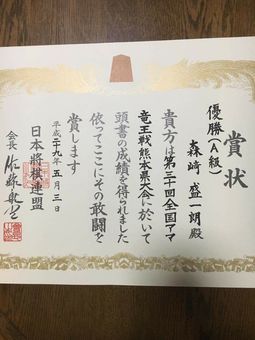 賞状
優勝(A級)
森崎 盛一朗殿
貴方は第三十回全国アマ
竜王戦熊本県大会に於いて
頭書の成績を得られました
依ってここにその敢闘を
賞します
平成二十九年 五月 三日
日本将棋連盟
会長